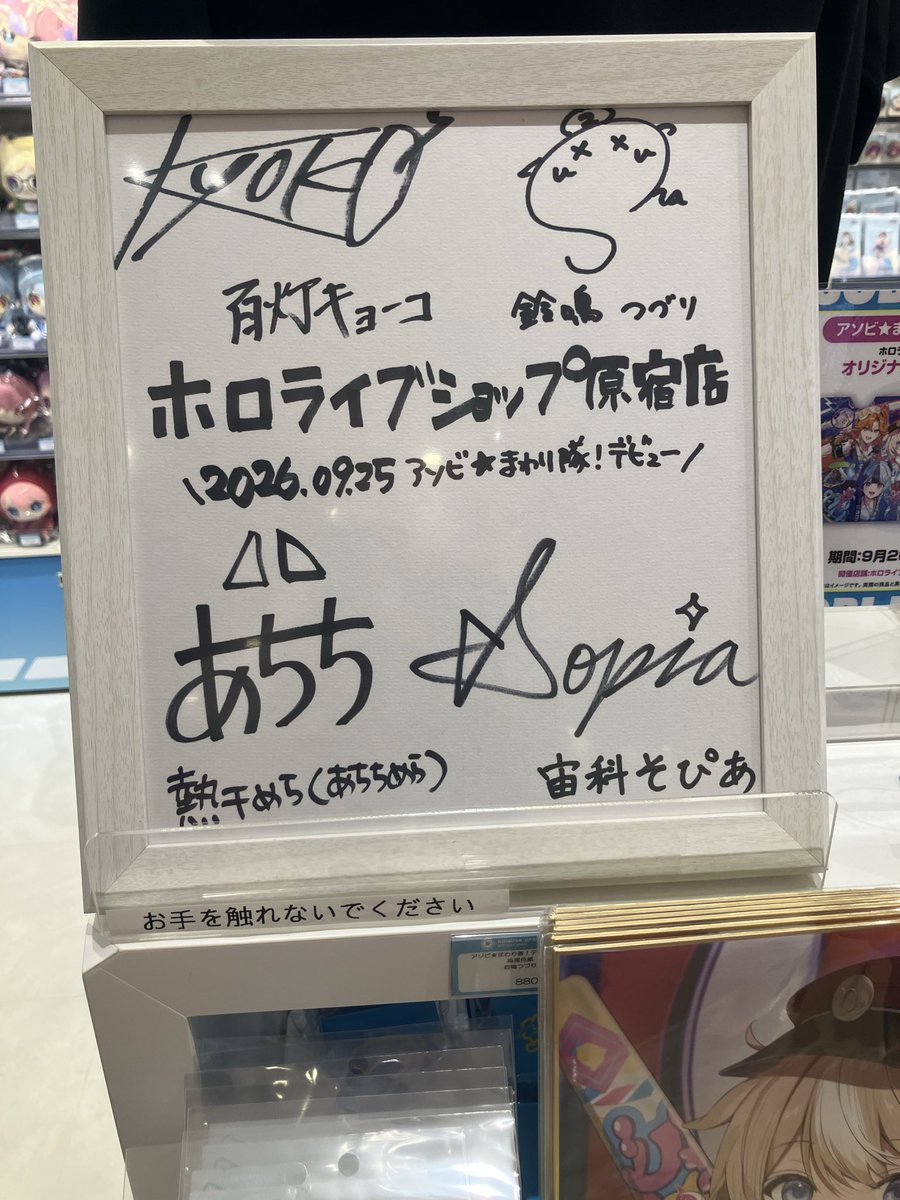 KYOKO
百灯キョーコ
鈴鳴 つづり
ホロライブショップ原宿店
\2026.09.25 アソビ★まわり隊!デビュー/
あちち
Sopia
熱千めら(あちちめら)
宙科そぴあ
お手を触れないでください
アソビ★ま
オリジナ
期間:9月2
開催店舗:ホロライブ
アソビ★まわり隊!デ
880